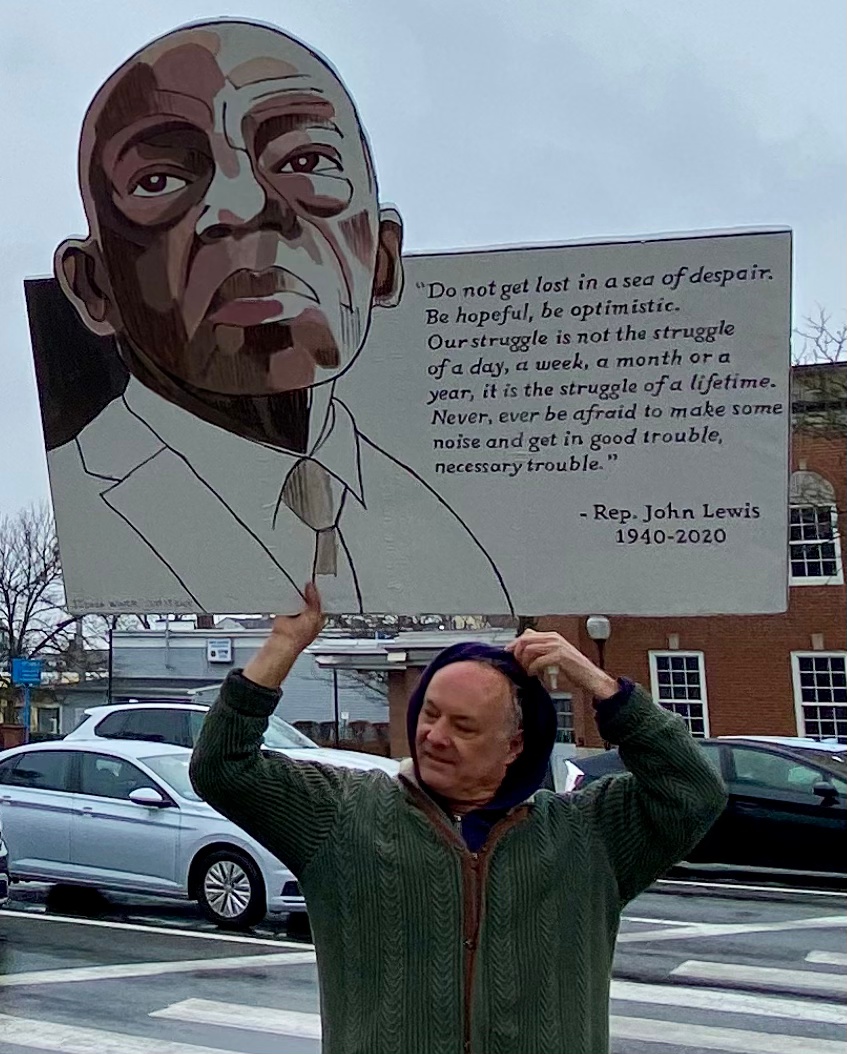 “Do not get lost in a sea of despair.
Be hopeful, be optimistic.
Our struggle is not the struggle
of a day, a week, a month or a
year, it is the struggle of a lifetime.
Never, ever be afraid to make some
noise and get in good trouble,
necessary trouble.”
- Rep. John Lewis
1940-2020